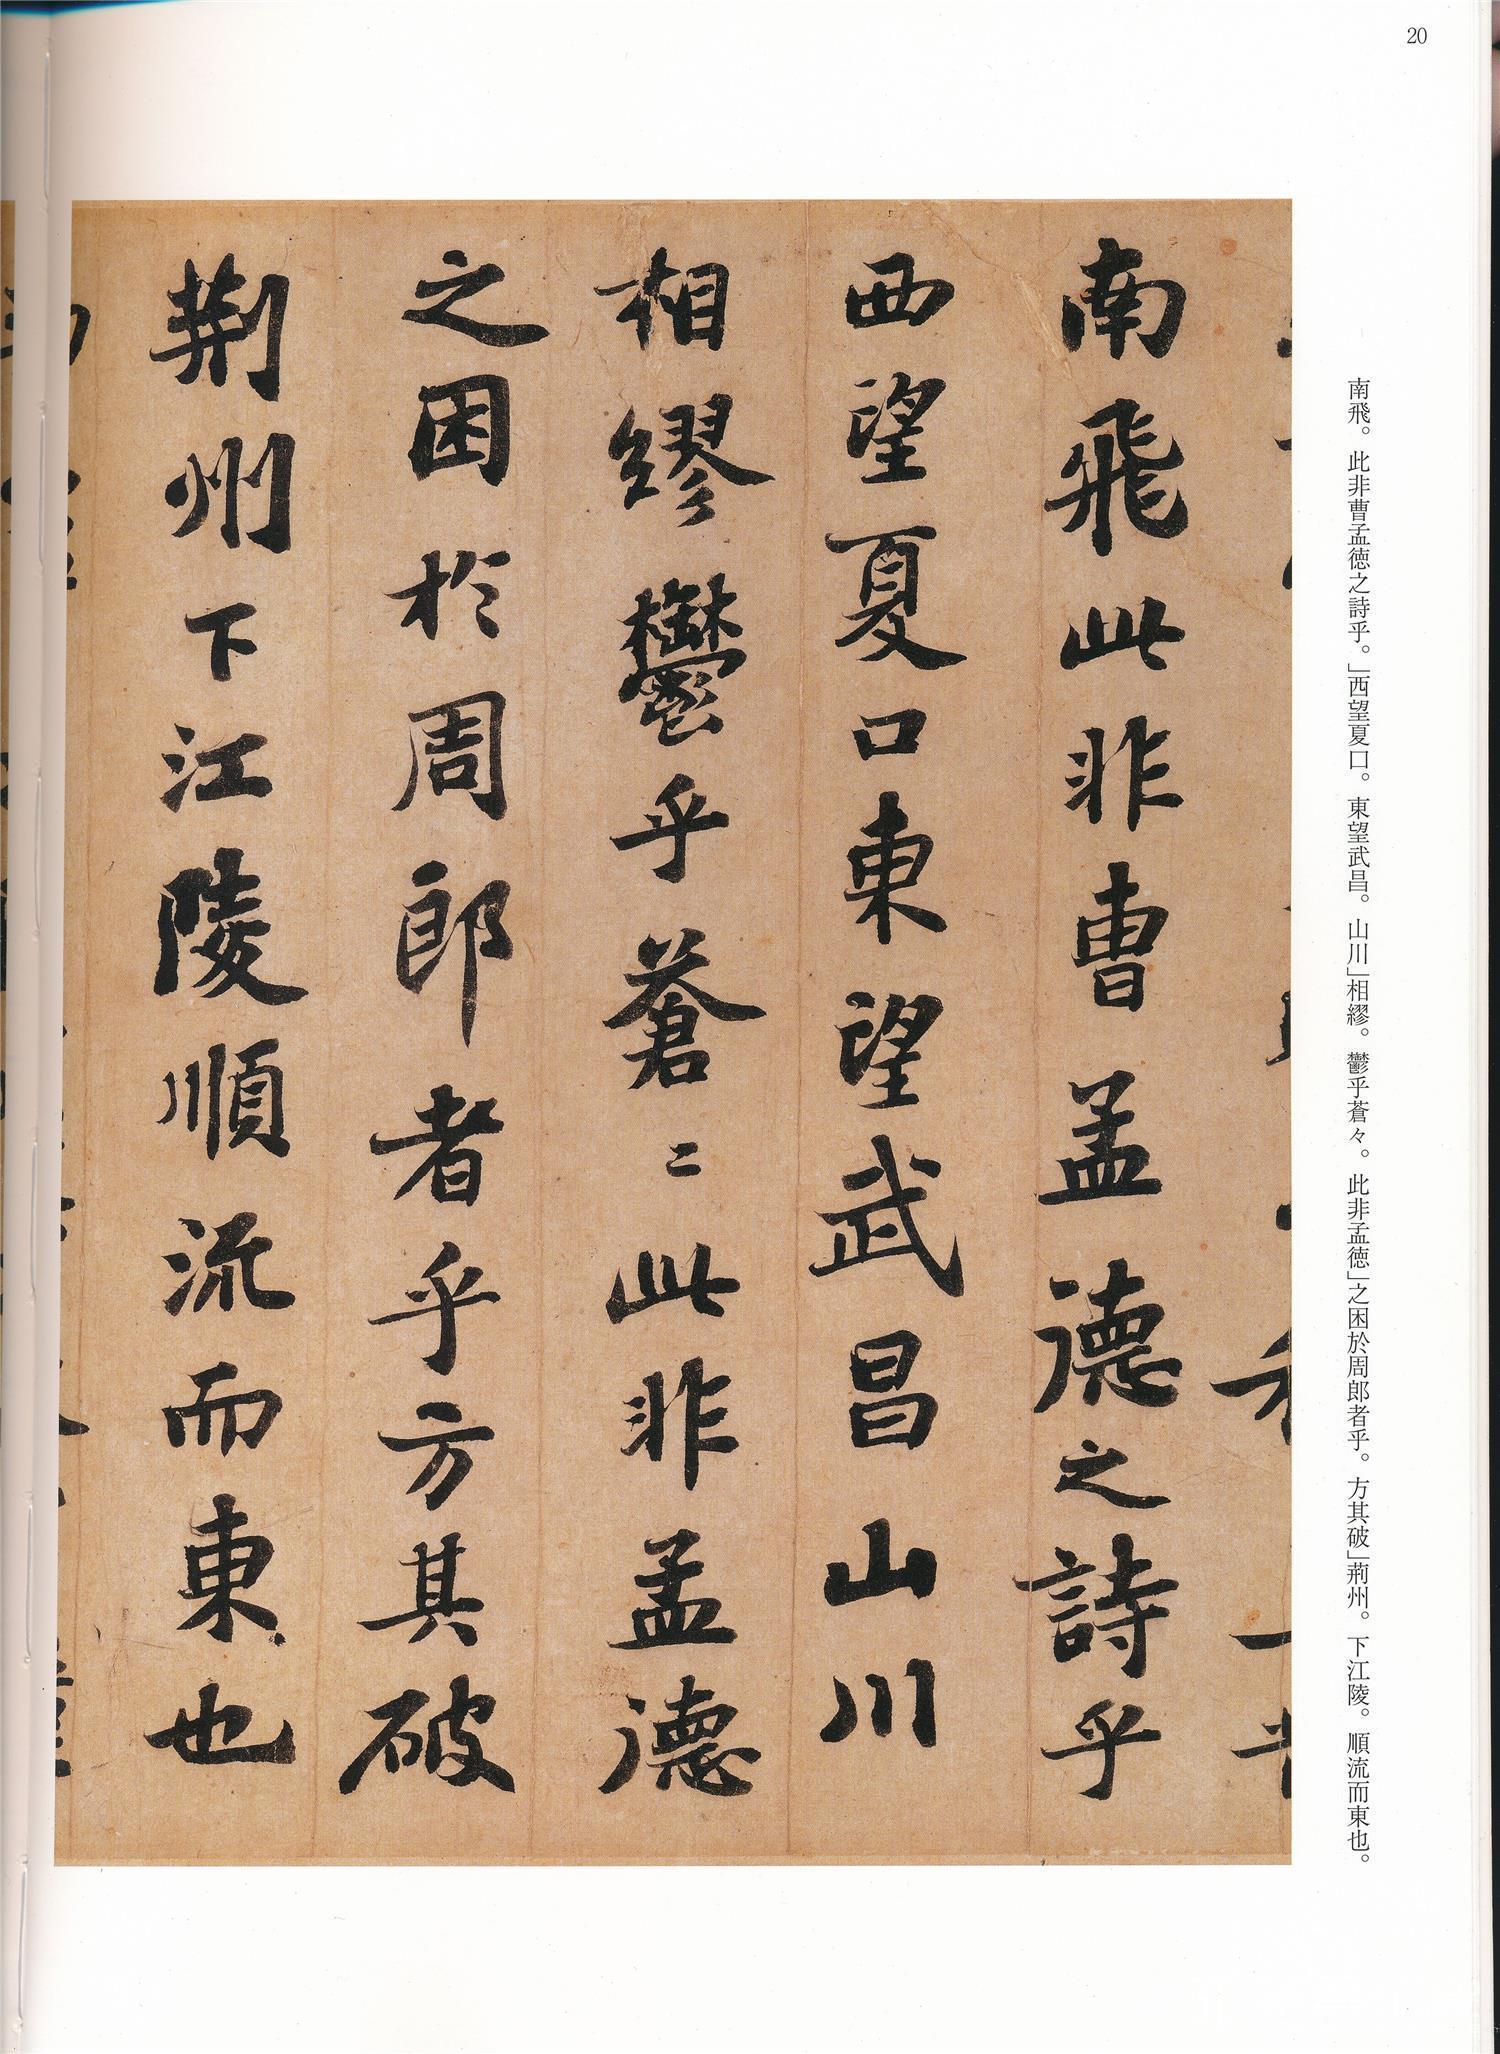 20
南飛。此非曹孟徳之詩乎。」西望夏口。東望武昌。山川」相繆。鬱乎蒼々。此非孟徳」之困於周郎者乎。方其破」荊州。下江陵。順流而東也。
南飛此非曹孟德之詩乎
西望夏口東望武昌山川
相繆鬱乎蒼〻此非孟德
之困於周郎者乎方其破
荊州下江陵順流而東也